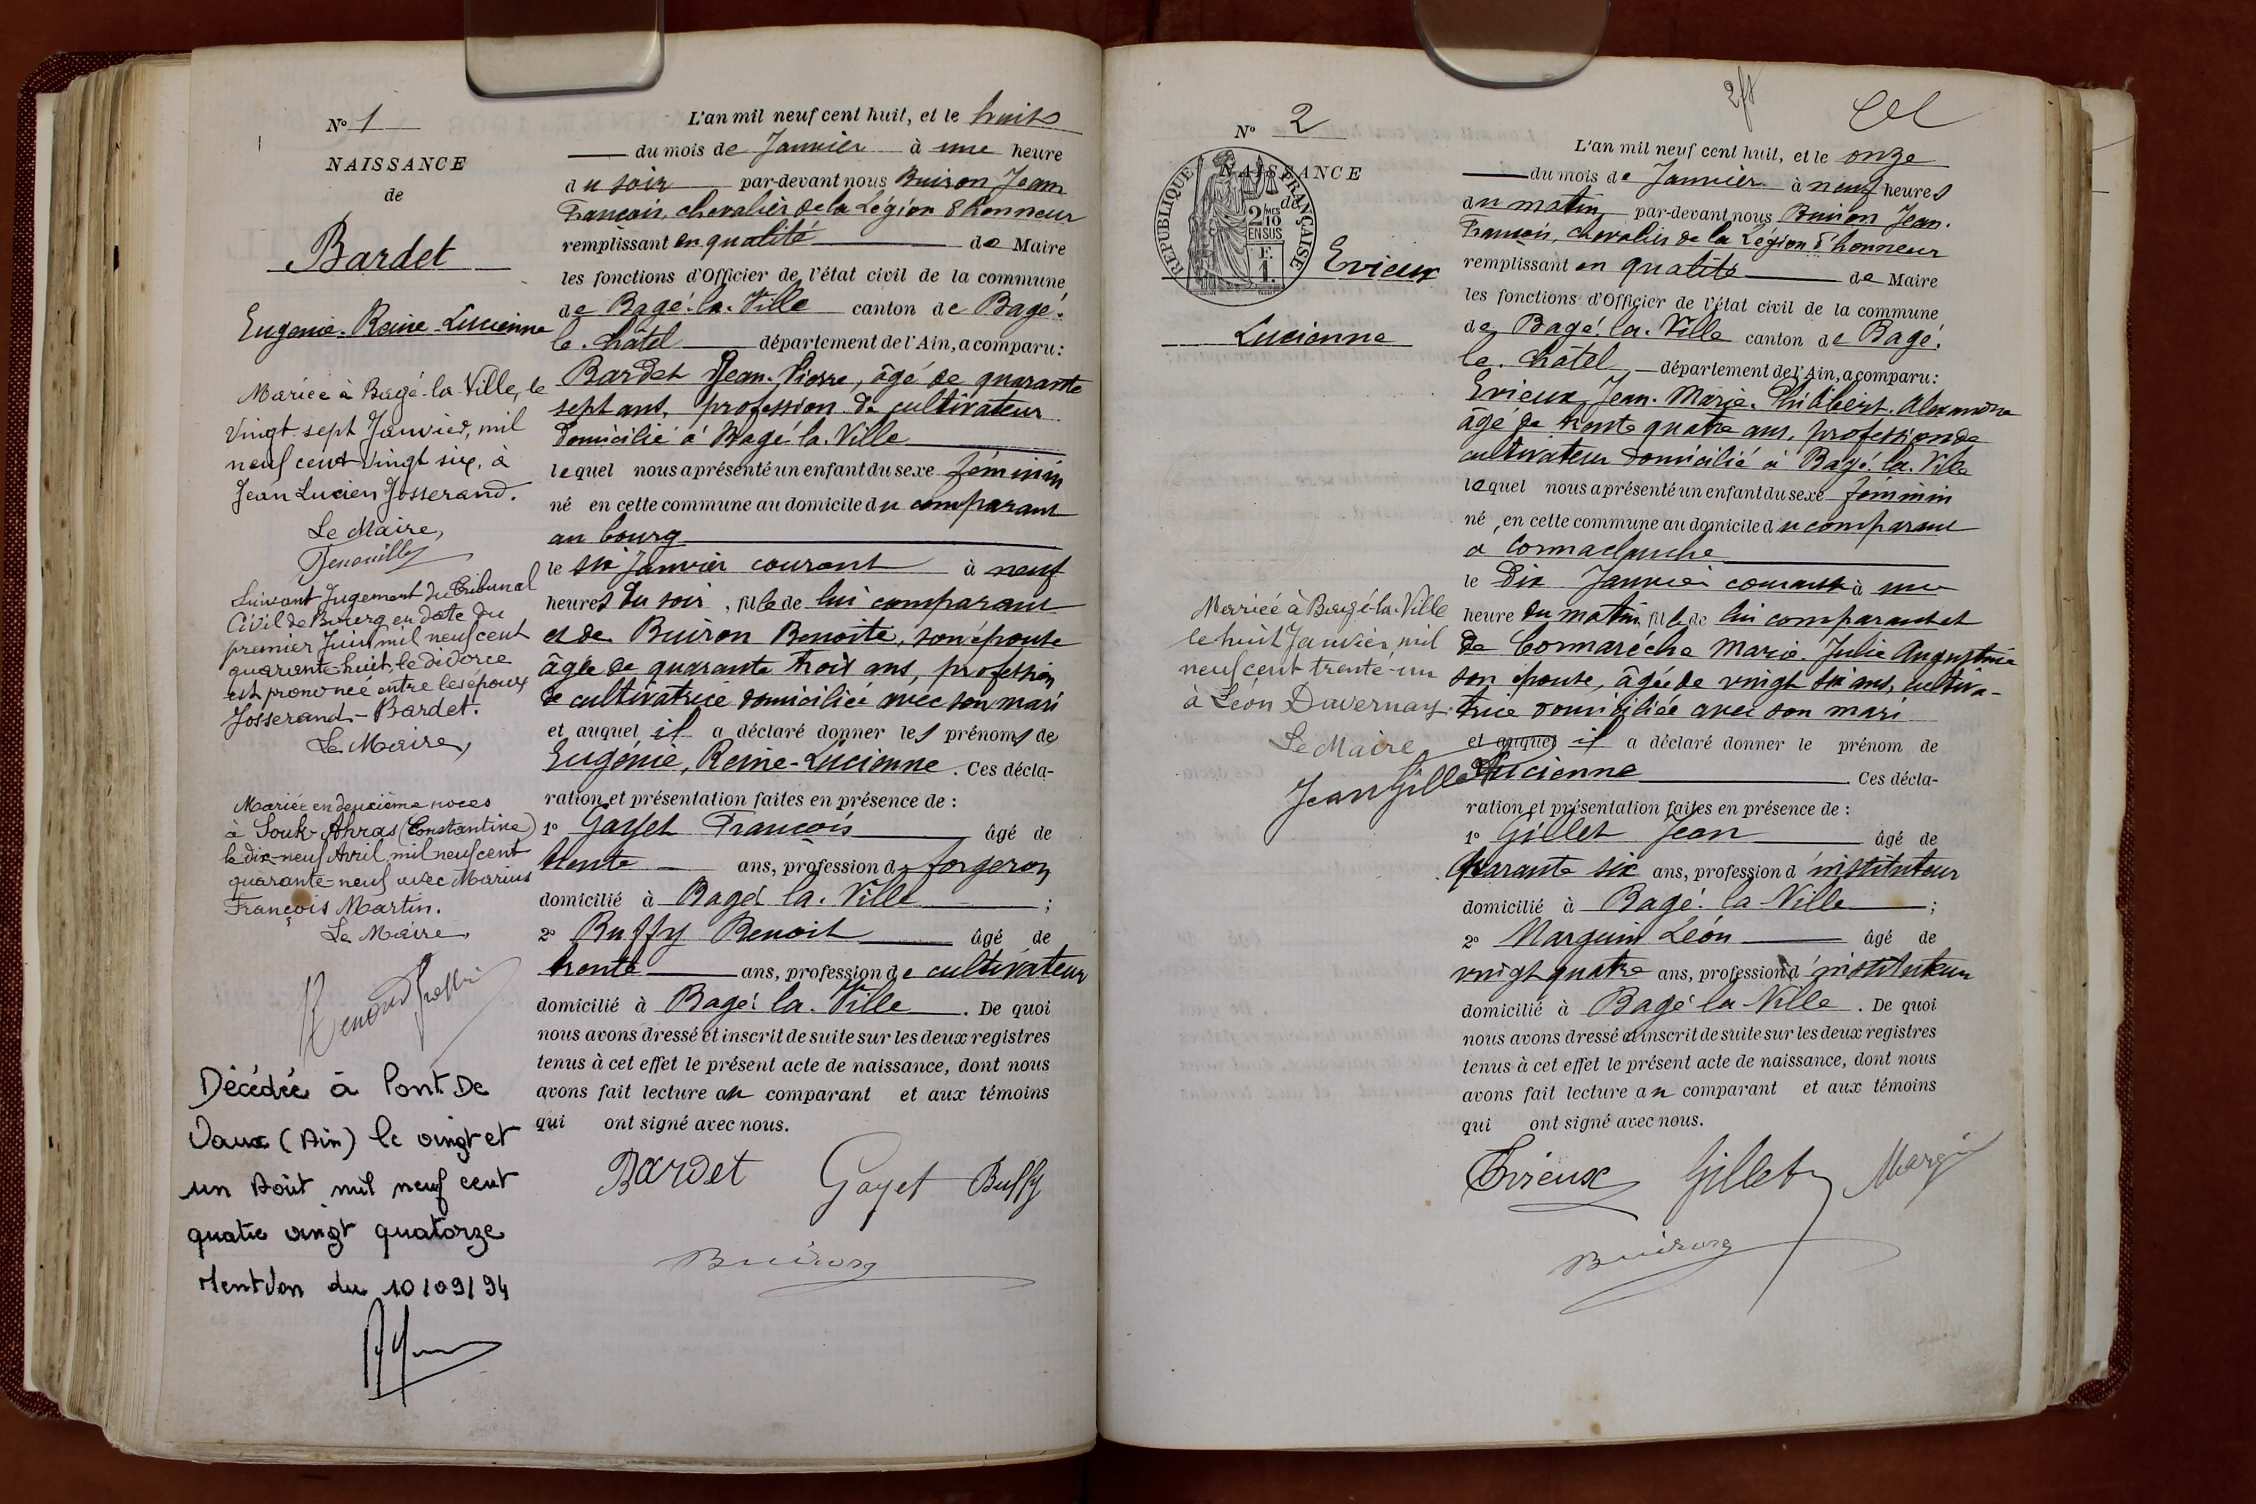 N° 1
NAISSANCE
de
Bardet
Eugénie-Reine-Lucienne
Mariée à Bagé-la-Ville, le
vingt-sept Janvier, mil
neuf cent vingt six, à
Jean Lucien Josserand.
Le Maire,
Suivant Jugement du Tribunal
Civil de Bourg en date du
premier Juin mil neuf cent
quarante-huit, le divorce
est prononcé entre les époux
Josserand-Bardet.
Le Maire,
Mariée en deuxième noces
à Souk-Ahras (Constantine)
le dix-neuf Avril mil neuf cent
quarante-neuf avec Marius
François Martin.
Le Maire,
Décédée à Pont De
Vaux (Ain) le vingt et
un Août mil neuf cent
quatre vingt quatorze
Mention du 10/09/94
L'an mil neuf cent huit, et le huit
du mois de Janvier à une heure
du soir par-devant nous Buiron Jean
François, chevalier de la Légion d'honneur
remplissant en qualité de Maire
les fonctions d'Officier de l'état civil de la commune
de Bagé-la-Ville canton de Bagé-
le-Châtel département de l'Ain, a comparu:
Bardet Jean-Pierre, âgé de quarante
sept ans, profession de cultivateur
domicilié à Bagé-la-Ville
lequel nous a présenté un enfant du sexe féminin
né en cette commune au domicile du comparant
au bourg
le six Janvier courant à neuf
heures du soir, fille de lui comparant
et de Buiron Benoite, son épouse
âgée de quarante trois ans, profession
de cultivatrice domiciliée avec son mari
et auquel il a déclaré donner les prénoms de
Eugénie, Reine-Lucienne. Ces décla-
ration et présentation faites en présence de :
1° Gayet François âgé de
trente ans, profession de forgeron
domicilié à Bagé la-Ville ;
2° Buffy Benoit âgé de
trente ans, profession de cultivateur
domicilié à Bagé-la-Ville. De quoi
nous avons dressé et inscrit de suite sur les deux registres
tenus à cet effet le présent acte de naissance, dont nous
avons fait lecture au comparant et aux témoins
qui ont signé avec nous.
Bardet Gayet Buffy
Buiron
N° 2
NAISSANCE
de
RÉPUBLIQUE FRANÇAISE
2/10 MES
EN SUS
E.
1.
Evieux
Lucienne
Mariée à Bagé-la-Ville
le huit Janvier, mil
neuf cent trente-un
à Léon Duvernay.
Le Maire
Jean Gillet
L'an mil neuf cent huit, et le onze
du mois de Janvier à neuf heures
du matin par-devant nous Buiron Jean-
François, chevalier de la Légion d'honneur
remplissant en qualité de Maire
les fonctions d'Officier de l'état civil de la commune
de Bagé-la-Ville canton de Bagé-
le-Châtel, département de l'Ain, a comparu:
Evieux Jean-Marie-Philibert-Alexandre
âgé de trente quatre ans, profession de
cultivateur domicilié à Bagé-la-Ville
lequel nous a présenté un enfant du sexe féminin
né en cette commune au domicile du comparant
à
le dix Janvier courant à une
heure du matin, fille de lui comparant et
de Cormarèche Marie-Julie Augustine
son épouse, âgée de vingt six ans, cultiva-
trice domiciliée avec son mari
et auquel il a déclaré donner le prénom de
Lucienne. Ces décla-
ration et présentation faites en présence de :
1° Gillet Jean âgé de
quarante six ans, profession d'instituteur
domicilié à Bagé-la-Ville ;
2° Marguin Léon âgé de
vingt quatre ans, profession d'instituteur
domicilié à Bagé-la-Ville. De quoi
nous avons dressé et inscrit de suite sur les deux registres
tenus à cet effet le présent acte de naissance, dont nous
avons fait lecture au comparant et aux témoins
qui ont signé avec nous.
Evieux Gillet Marguin
Buiron